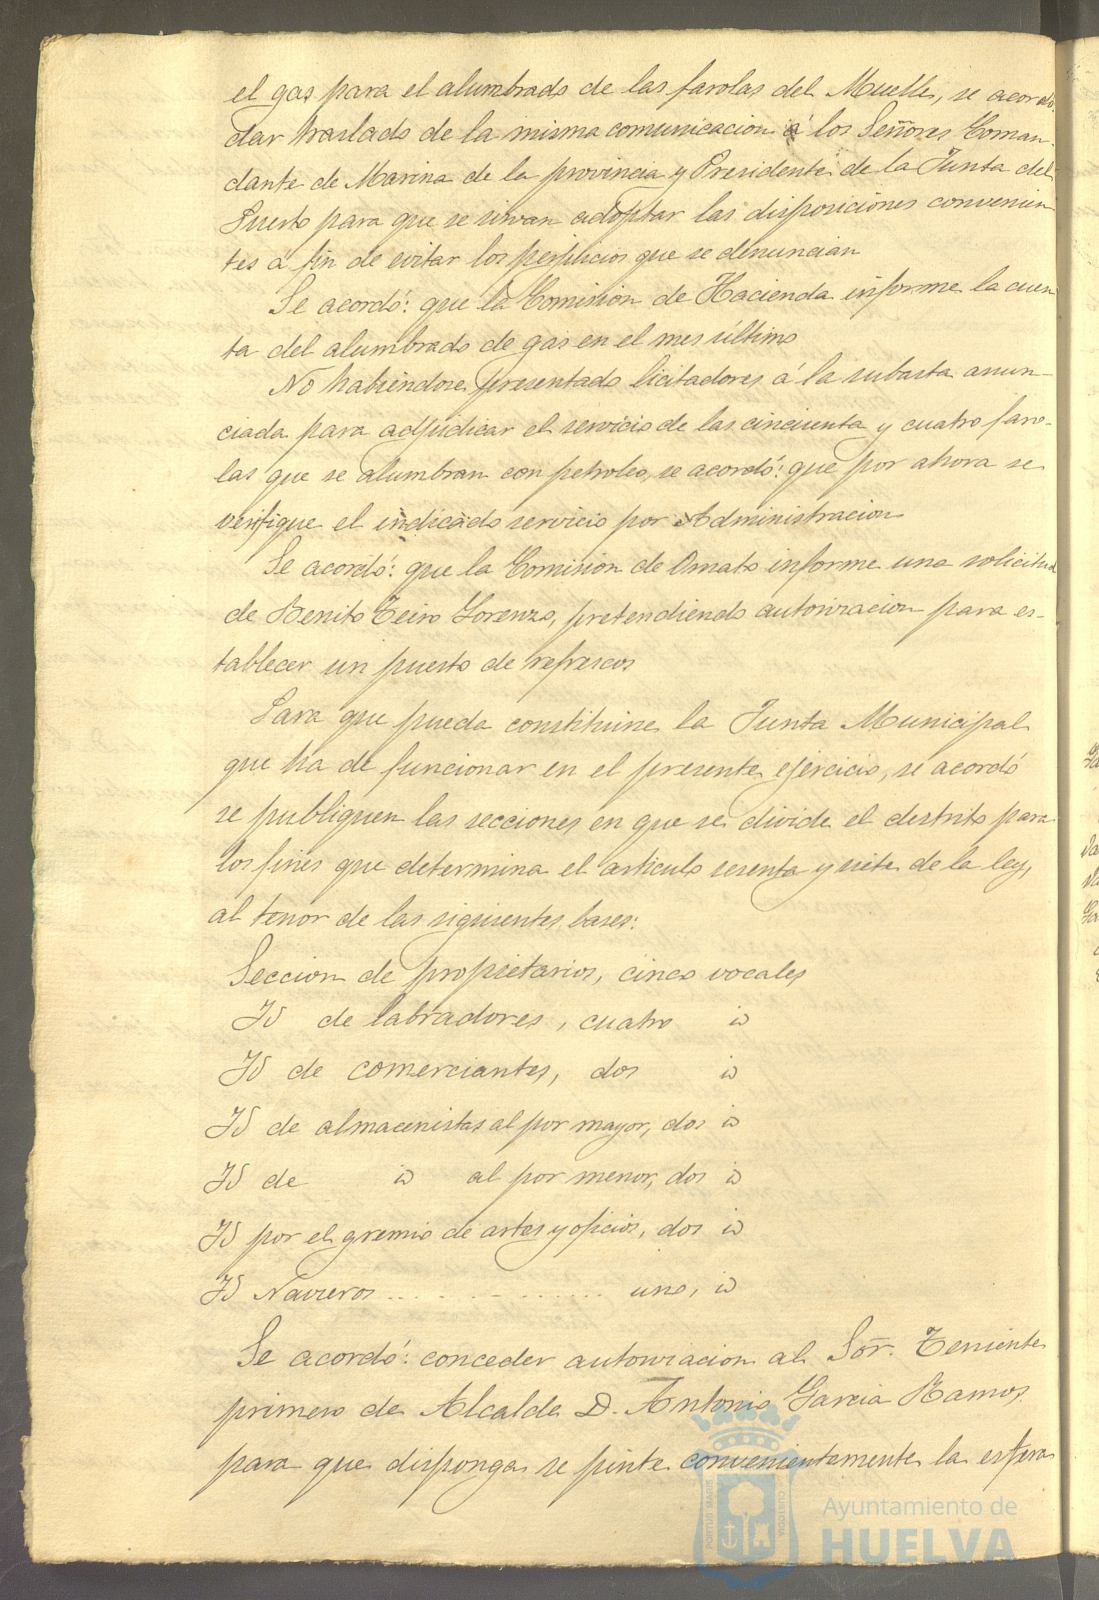 el gas para el alumbrado de las farolas del Muelle, se acordó
dar traslado de la misma comunicacion á los Señores Coman-
dante de Marina de la provincia y Presidente de la Junta del
Puerto para que se sirvan adoptar las disposiciones convenien
tes a fin de evitar los perjuicios que se denuncian
Se acordó: que la Comision de Hacienda informe la cuen
ta del alumbrado de gas en el mes último
No habiendose presentado licitadores á la subasta anun-
ciada para adjudicar el servicio de las cincuenta y cuatro faro-
las que se alumbran con petroleo, se acordó: que por ahora se
verifique el indicado servicio por Administracion
Se acordó: que la Comision de Ornato informe una solicitud
de Benito Teiro Lorenzo, pretendiendo autorizacion para es-
tablecer un puesto de refrescos
Para que pueda constituirse la Junta Municipal
que ha de funcionar en el presente ejercicio, se acordó
se publiquen las secciones en que se divide el destrito para
los fines que determina el articulo sesenta y siete de la ley,
al tenor de las siguientes bases:
Seccion de propietarios, cinco vocales
Id de labradores, cuatro id
Id de comerciantes, dos id
Id de almacenistas al por mayor, dos id
Id de id al por menor, dos id
Id por el gremio de artes y oficios, dos id
Id Navieros .............. uno, id
Se acordó: conceder autorizacion al Sor. Teniente
primero de Alcalde D. Antonio Garcia Ramos
para que disponga se pinte convenientemente la esfera
PORTUS MARIS
CUSTODIA
Ayuntamiento de
HUELVA